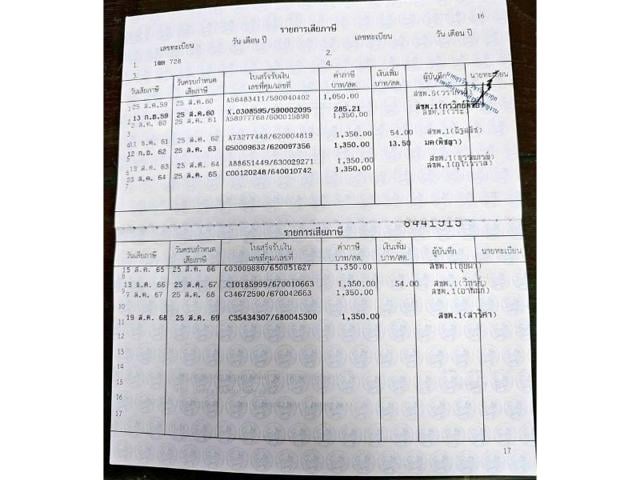 16
รายการเสียภาษี
เลขทะเบียน วัน เดือน ปี เลขทะเบียน วัน เดือน ปี
1. 1ฒฒ 728 2.
3. 4.
วันเสียภาษี วันครบกำหนดเสียภาษี ใบเสร็จรับเงิน เลขที่คุม/เลขที่ ค่าภาษี บาท/สต. เงินเพิ่ม บาท/สต. ผู้บันทึก นายทะเบียน
25 ส.ค.59 25 ส.ค. 60 A56483411/590040402 1,050.00
2 13 ก.ย.59 25 ส.ค. 60 X.0308595/590002095 285.21 สขพ.1
25 ส.ค. 61 1,350.00
ธ.ค. 61 25 ส.ค. 62 A73277448/620004819 1,350.00 54.00 สขพ.1
12 ก.ย. 62 25 ส.ค. 63 G50009632/620097356 1,350.00 13.50 มค(พิชฎา)
ส.ค. 63 25 ส.ค. 64 A88651449/630029271 1,350.00 สขพ.1
ส.ค. 64 25 ส.ค. 65 C00120248/640010742 1,350.00 สขพ.1
รายการเสียภาษี
วันเสียภาษี วันครบกำหนดเสียภาษี ใบเสร็จรับเงิน เลขที่คุม/เลขที่ ค่าภาษี บาท/สต. เงินเพิ่ม บาท/สต. ผู้บันทึก นายทะเบียน
15 ส.ค. 65 25 ส.ค. 66 C03009880/650051627 1,350.00 สขพ.1
8
13 ธ.ค. 66 25 ส.ค. 67 C10185999/670010663 1,350.00 54.00 สขพ.1
9 7 ส.ค. 67 25 ส.ค. 68 C34672590/670042663 1,350.00 สขพ.1
10
11 19 ส.ค. 68 25 ส.ค. 69 C35434307/680045300 1,350.00 สขพ.1(สาริศา)
12
13
14
15
16
17
17